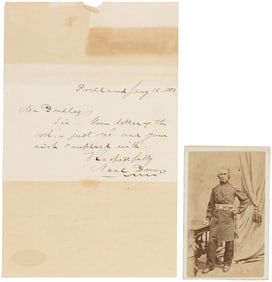 Portland Jany 18. 18
Dudley
Sir – Your letter of the
15th is just rec'd and your
wish complied with
Respectfully
Neal Dow